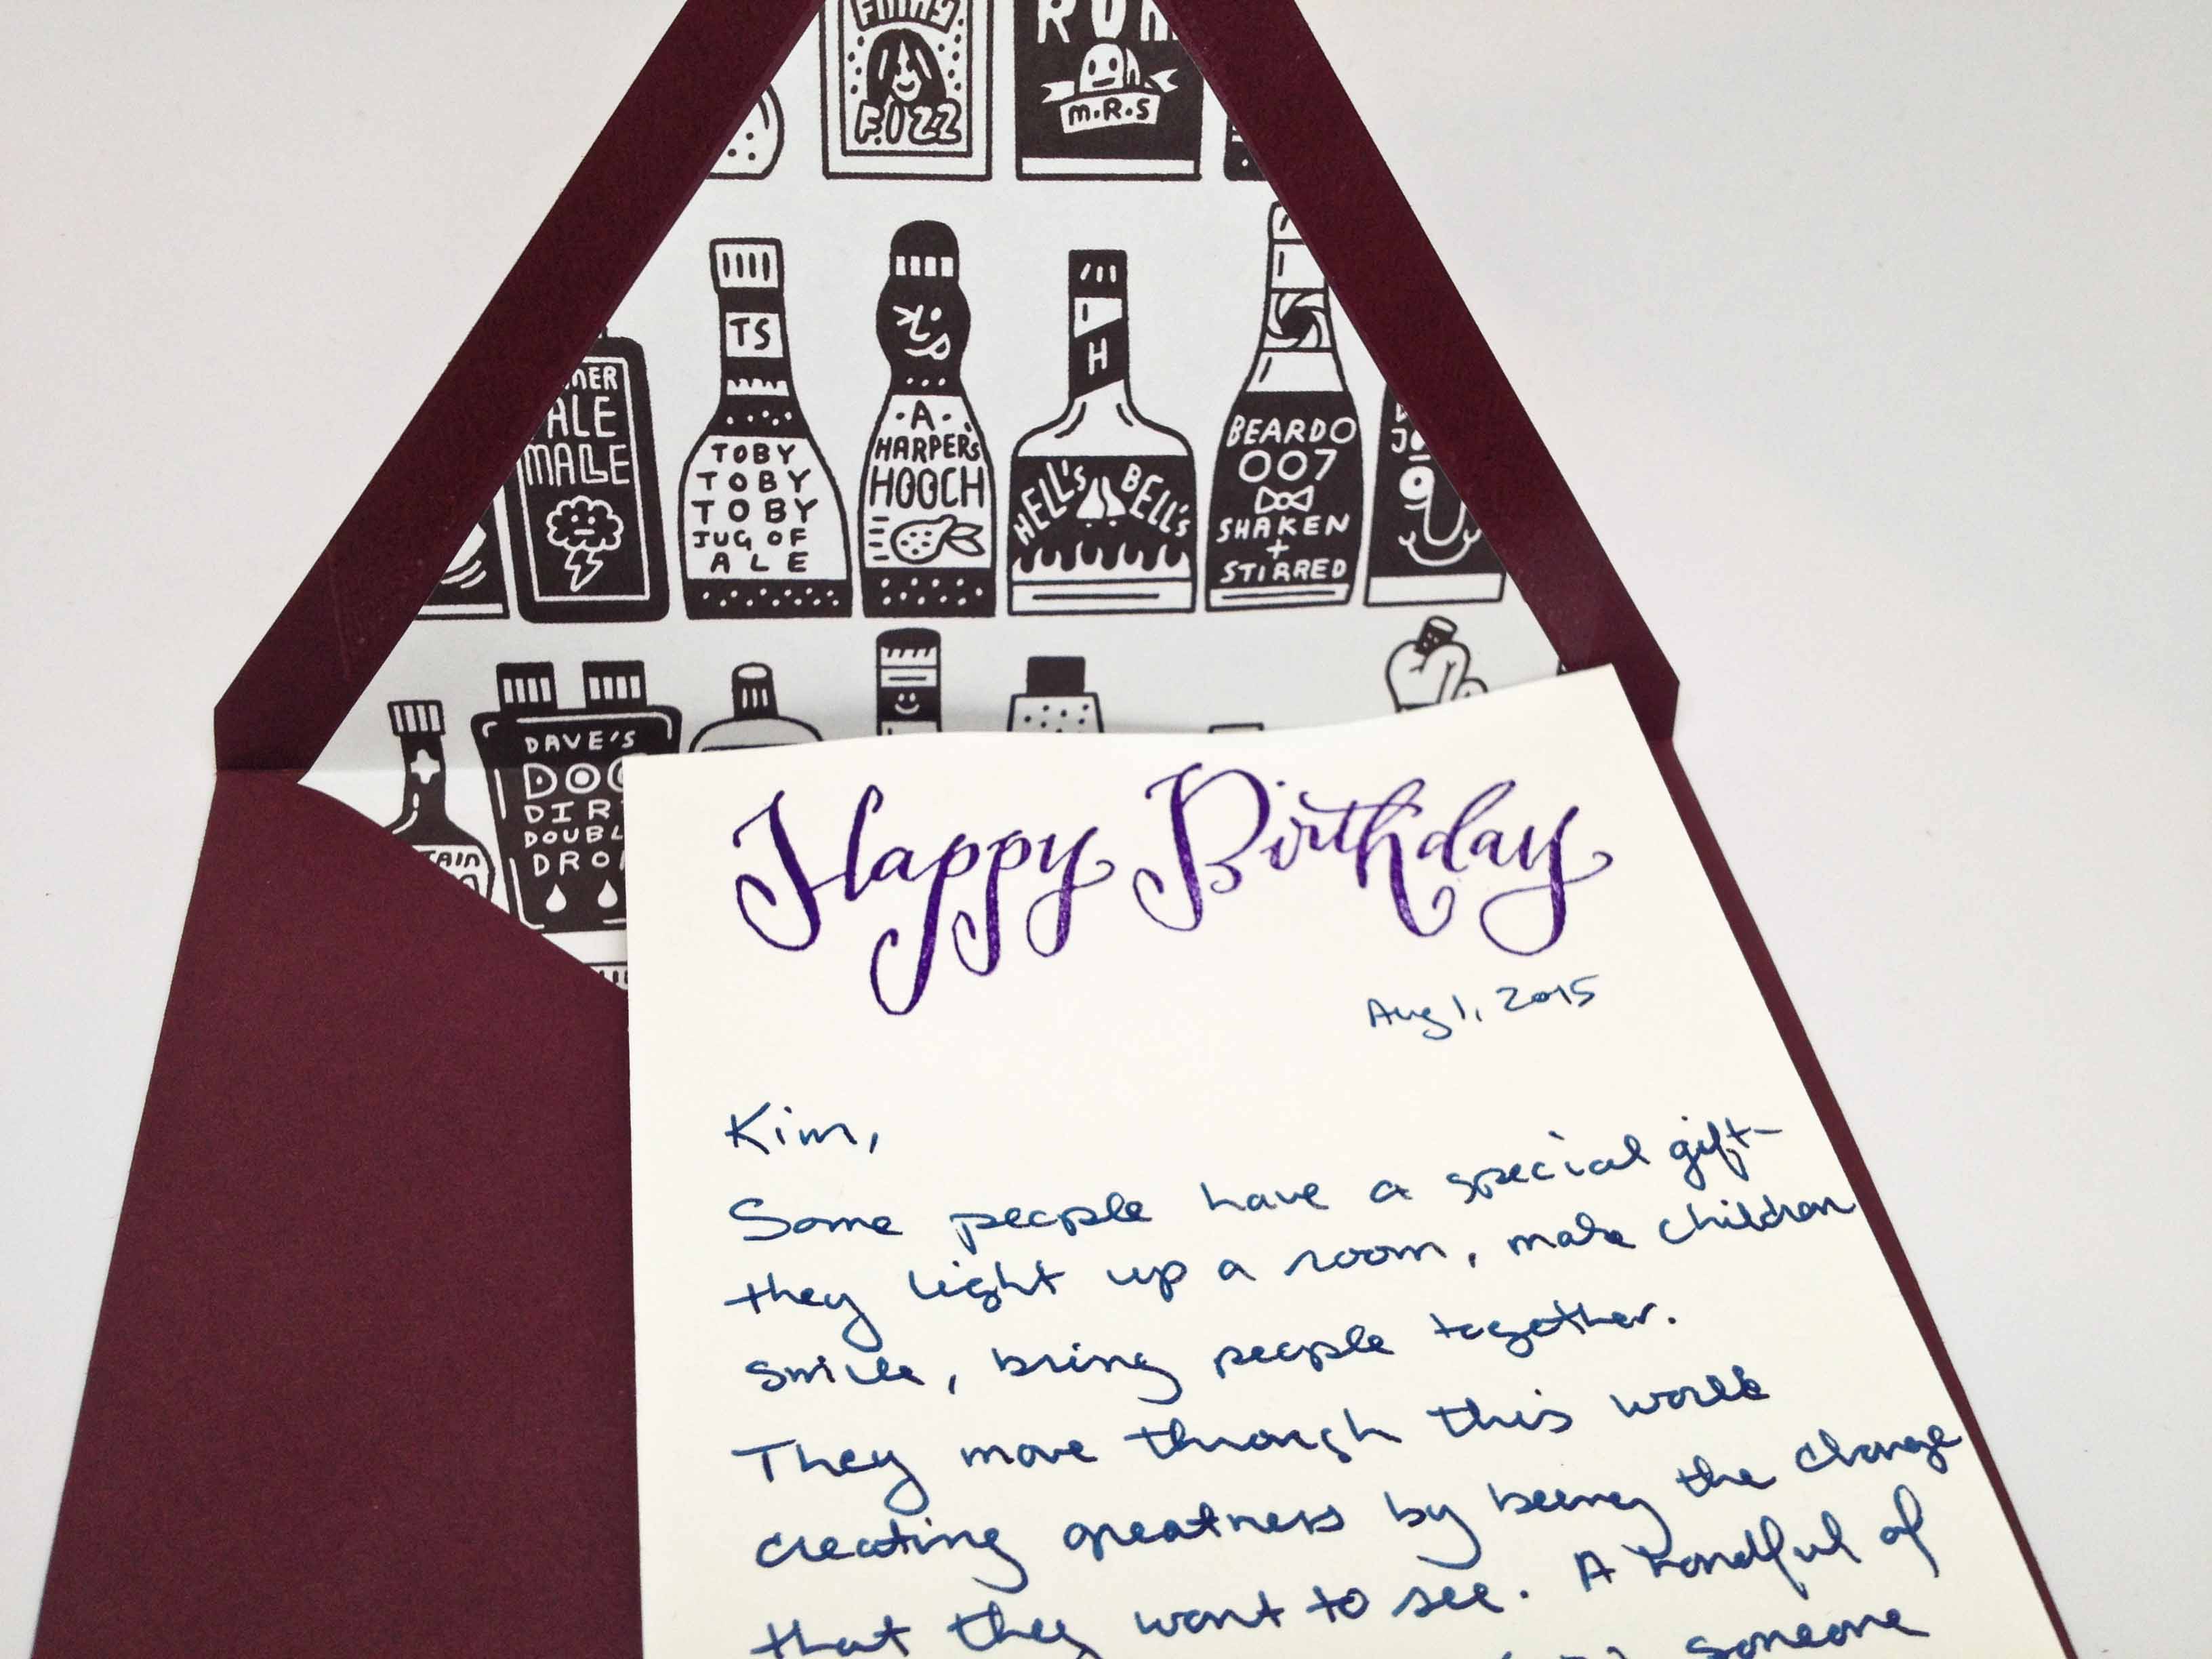 FIZZ
RUM
M.R.S
ALE
MALLE
TS
TOBY
TOBY
TOBY
JUG OF
ALE
A
HARPERS
HOOCH
H
HELL'S BELL'S
BEARDO
007
SHAKEN
+
STIRRED
DAVE'S
Happy Birthday
Aug 1, 2015
Kim,
Some people have a special gift-
they light up a room, make children
smile, bring people together.
They move through this world
creating greatness by being the change
that they want to see. A handful of
someone